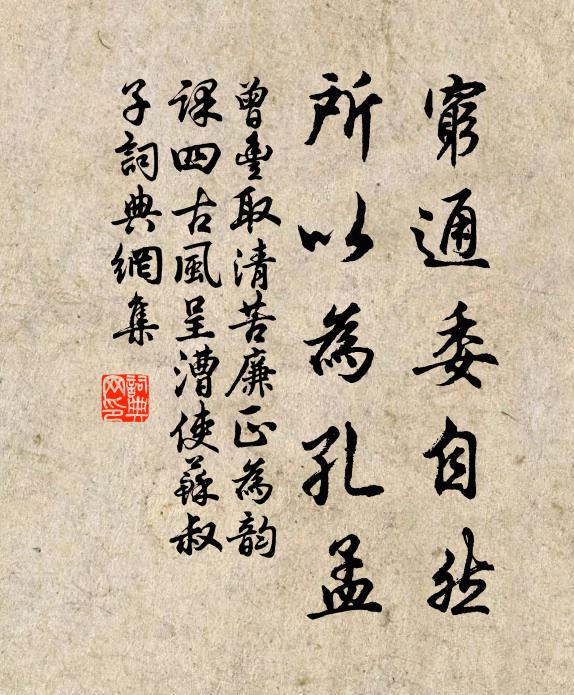 窮通委自然
所以為孔孟
曾豊取清苦廉正為韵
課四古風呈漕使蘇叔
子詞典網集
詞典
网印